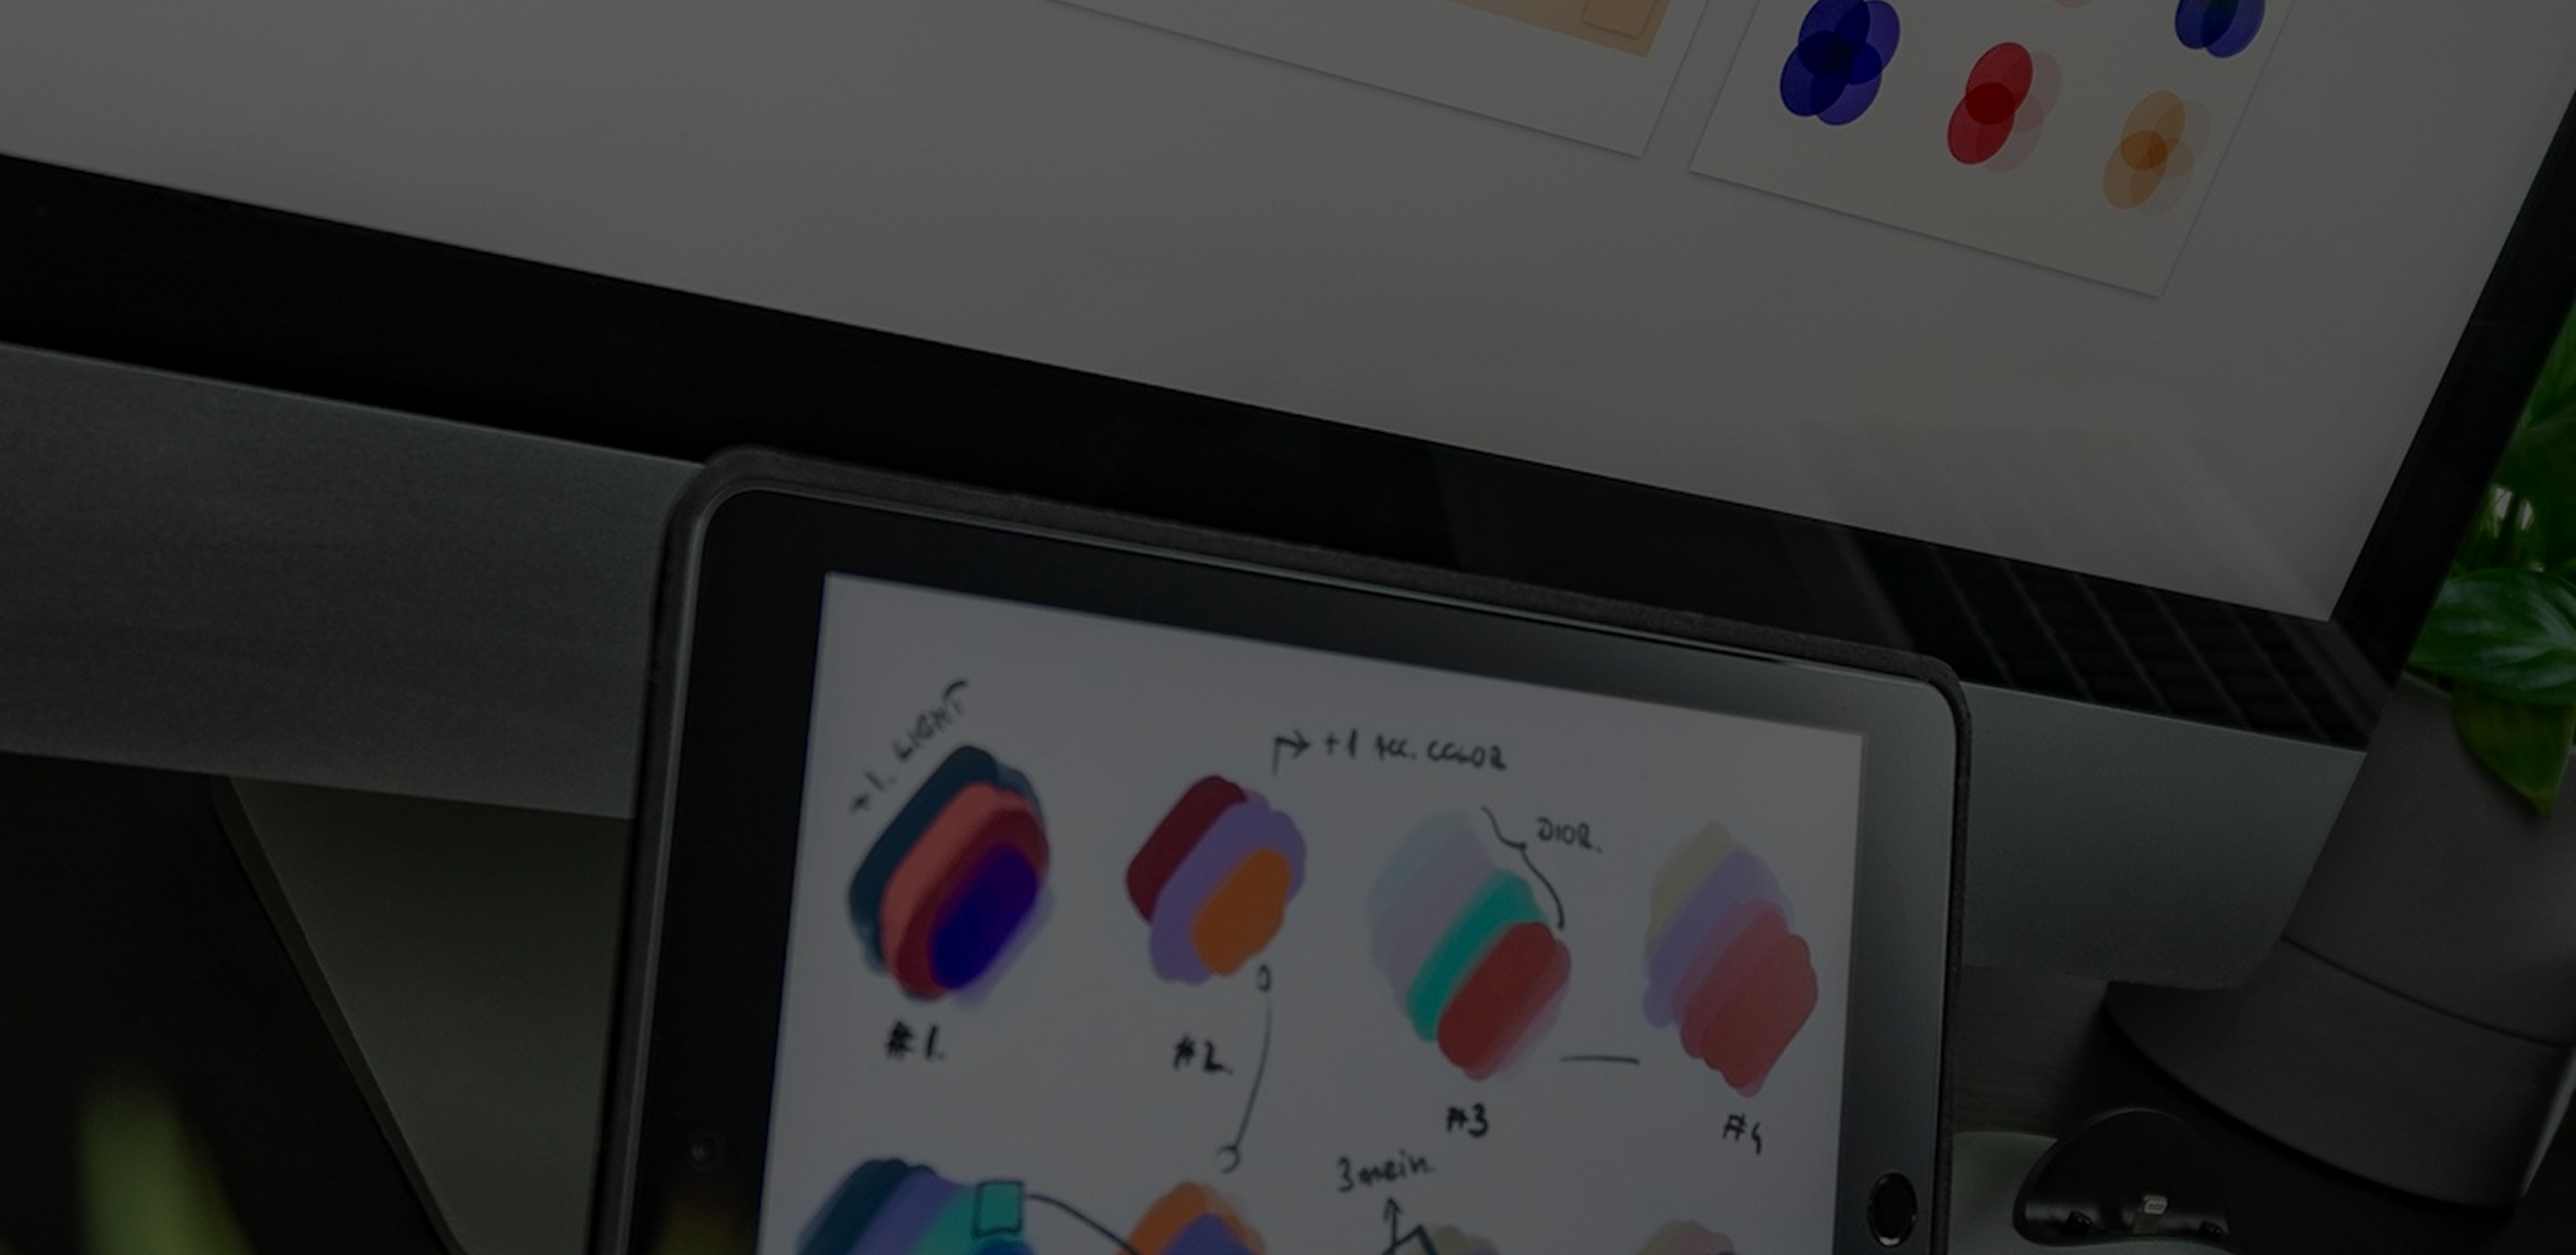 +1. LIGHT
+1 Acc. COLOR
DIOR.
#1.
#2
#3
#4
3 main.